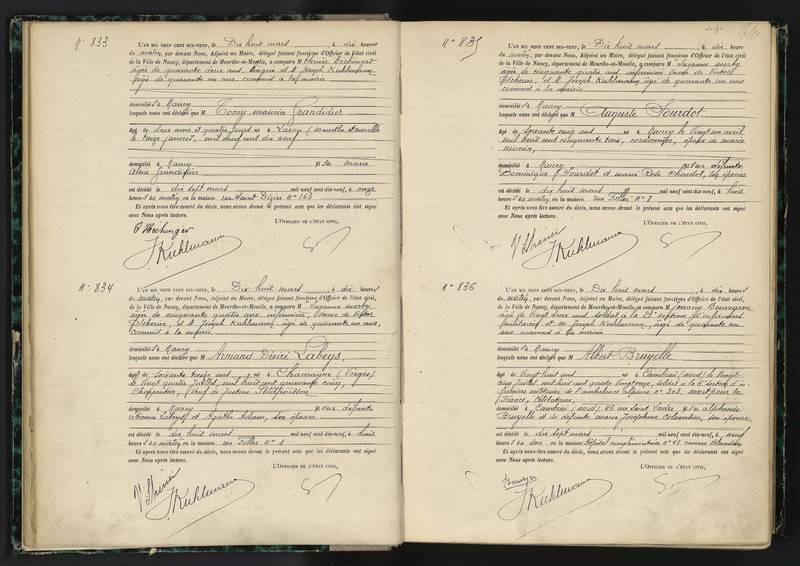 N° 833
L'AN MIL NEUF CENT DIX-NEUF, le Dix huit mars, à dix heures
du matin, par devant Nous, Adjoint au Maire, délégué faisant fonctions d'Officier de l'état civil,
de la Ville de Nancy, département de Meurthe-et-Moselle, a comparu M
âgée de quarante deux ans et M Joseph Kuhlmann
âgé de quarante un ans, commis à la mairie
domicilié s à Nancy
lesquels nous ont déclaré que M Tomy maurice Grandidier
âgé de deux mois et quatre jours né à Laxou (Meurthe et moselle
le treize janvier, mil neuf cent dix neuf
domicilié à Nancy
Grandidier
est décédé le dix sept mars mil neuf cent dix-neuf, à onze
heures du matin, en la maison rue Saint Dizier n° 163
Et après nous être assuré du décès, nous avons dressé le présent acte que les déclarants ont signé
avec Nous après lecture.
L'OFFICIER DE L'ÉTAT CIVIL,
J Kuhlmann
N° 834
L'AN MIL NEUF CENT DIX-NEUF, le Dix huit mars, à dix heures
du matin, par devant Nous, Adjoint au Maire, délégué faisant fonctions d'Officier de l'état civil,
de la Ville de Nancy, département de Meurthe-et-Moselle, a comparu M Suzanne
âgée de cinquante quatre ans infirmière, veuve de Victor
et M Joseph Kuhlmann, âgé de quarante un ans,
commis à la mairie
domicilié s à Nancy
lesquels nous ont déclaré que M Armand Désiré Labeys,
âgé de soixante treize ans, né à Chamagne (Vosges)
le vingt quatre juillet, mil huit cent quarante cinq,
veuf de Justine
domicilié à Nancy fils des défunts
Etienne et Agathe Adam, son épouse
est décédé le dix huit mars mil neuf cent dix-neuf, à huit
heures du matin, en la maison rue Foller n° 1
Et après nous être assuré du décès, nous avons dressé le présent acte que les déclarants ont signé
avec Nous après lecture.
L'OFFICIER DE L'ÉTAT CIVIL,
J Kuhlmann
N° 835
L'AN MIL NEUF CENT DIX-NEUF, le Dix huit mars, à dix heures
du matin, par devant Nous, Adjoint au Maire, délégué faisant fonctions d'Officier de l'état civil,
de la Ville de Nancy, département de Meurthe-et-Moselle, a comparu M Suzanne
âgée de cinquante quatre ans infirmière veuve de Victor
et M Joseph Kuhlmann âgé de quarante un ans
commis à la mairie
domicilié s à Nancy
lesquels nous ont déclaré que M Auguste Sourdot
âgé de soixante cinq ans né à Nancy le vingt un avril
mil huit cent cinquante trois, cordonnier, époux de marie
domicilié à Nancy fils des défunts
Dominique Sourdot et marie Rose Chardot, son épouse
est décédé le dix huit mars mil neuf cent dix-neuf, à huit
heures du matin, en la maison rue Foller n° 1
Et après nous être assuré du décès, nous avons dressé le présent acte que les déclarants ont signé
avec Nous après lecture.
L'OFFICIER DE L'ÉTAT CIVIL,
J Kuhlmann
N° 836
L'AN MIL NEUF CENT DIX-NEUF, le Dix huit mars, à dix heures
du matin, par devant Nous, Adjoint au Maire, délégué faisant fonctions d'Officier de l'état civil,
de la Ville de Nancy, département de Meurthe-et-Moselle, a comparu M
âgé de vingt deux ans, soldat à la 23e section d'infirmiers
militaires et M Joseph Kuhlmann, âgé de quarante un
ans commis à la mairie
domicilié s à Nancy
lesquels nous ont déclaré que M Albert Bruyelle
âgé de vingt huit ans né à Cambrai (nord) le vingt
cinq juillet, mil huit cent quatre vingt onze, soldat à la section d'in
firmiers militaires de l'ambulance alpine n° 303, mort pour la
France, célibataire
domicilié à Cambrai (nord), 46 rue Saint Ladre fils de alphonse
Bruyelle et de défunte marie Joséphine Colombier, son épouse
est décédé le dix sept mars mil neuf cent dix-neuf, à neuf
heures du soir, en la maison Hôpital complémentaire n° 43 caserne Blandan
Et après nous être assuré du décès, nous avons dressé le présent acte que les déclarants ont signé
avec Nous après lecture.
L'OFFICIER DE L'ÉTAT CIVIL,
J Kuhlmann